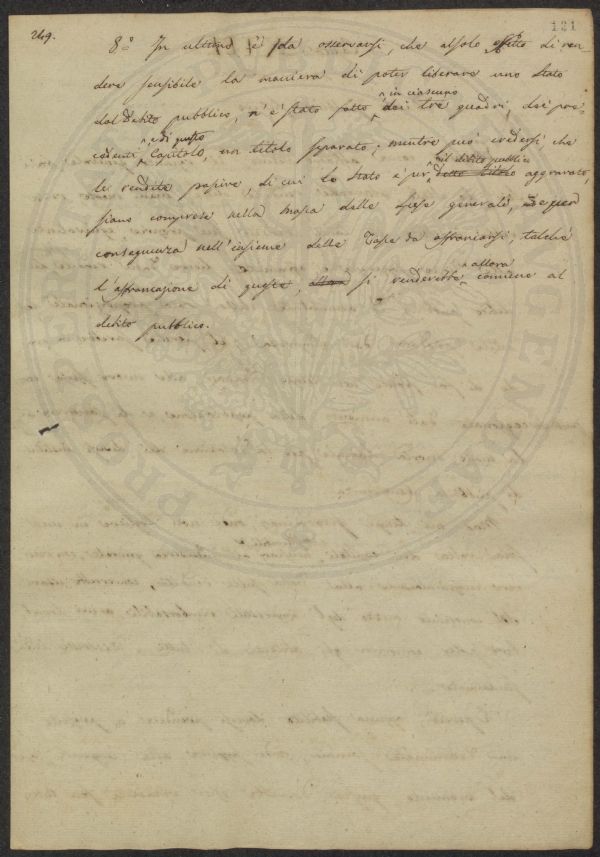 249.
121
8.° In ultimo è da osservarsi, che al solo effetto di ren-
dere sensibile la maniera di poter liberare uno Stato
in ciascuno
dal Debito pubblico, n'è stato fatto dei tre quadri, dei pre-
e di questo
cedenti Capitolo, un titolo separato; mentre può credersi che
nel debito pubblico
le rendite passive, di cui lo Stato è per aggravato,
siano comprese nella massa delle spese generali, 
conseguenza nell'insieme delle Tasse da affrancarsi; talchè
allora
l'affrancazione di queste, si renderebbe comune al
debito pubblico.